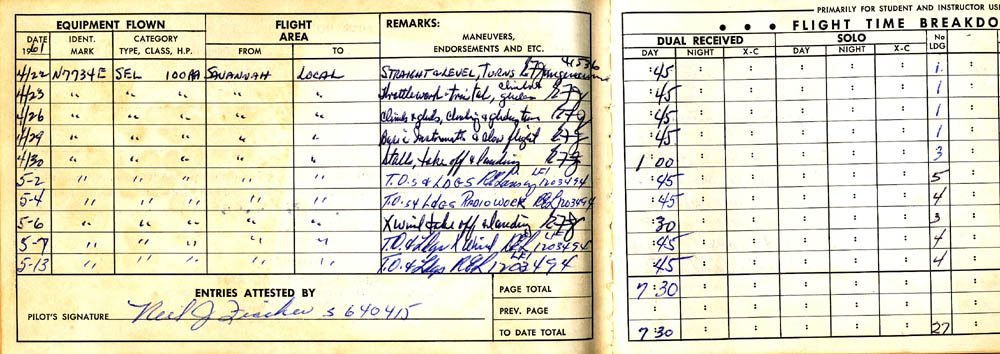 EQUIPMENT FLOWN FLIGHT AREA REMARKS:
DATE 1961 IDENT. MARK CATEGORY TYPE, CLASS, H.P. FROM TO MANEUVERS, ENDORSEMENTS AND ETC.
4/22 N7734E SEL 100 SAVANNAH LOCAL STRAIGHT & LEVEL, TURNS 41536
4/23 " " " " Throttlework - trim tab, climbs & glides
4/26 " " " " Climbs & glides, climbing & gliding turns
4/29 " " " " Basic Instruments & slow flight
4/30 " " " " Stalls, take off & landing
5-2 " " " " T.O.s & LDGS 1203494
5-4 " " " " T.O.s & LDGS RADIO WORK 1203494
5-6 " " " " X wind take off & landing
5-7 " " " " T.O. & Ldgs X Wind 1203494
5-13 " " " " T.O. & Ldgs 1203494
ENTRIES ATTESTED BY
PILOT'S SIGNATURE Neil J Fischer S 640415
PAGE TOTAL
PREV. PAGE
TO DATE TOTAL
PRIMARILY FOR STUDENT AND INSTRUCTOR US
• • • FLIGHT TIME BREAKDO
DUAL RECEIVED SOLO No LDG
DAY NIGHT X-C DAY NIGHT X-C
:45 1
:45 1
:45 1
:45 1
1:00 3
:45 5
:45 4
:30 3
:45 4
:45 4
7:30
7:30 27